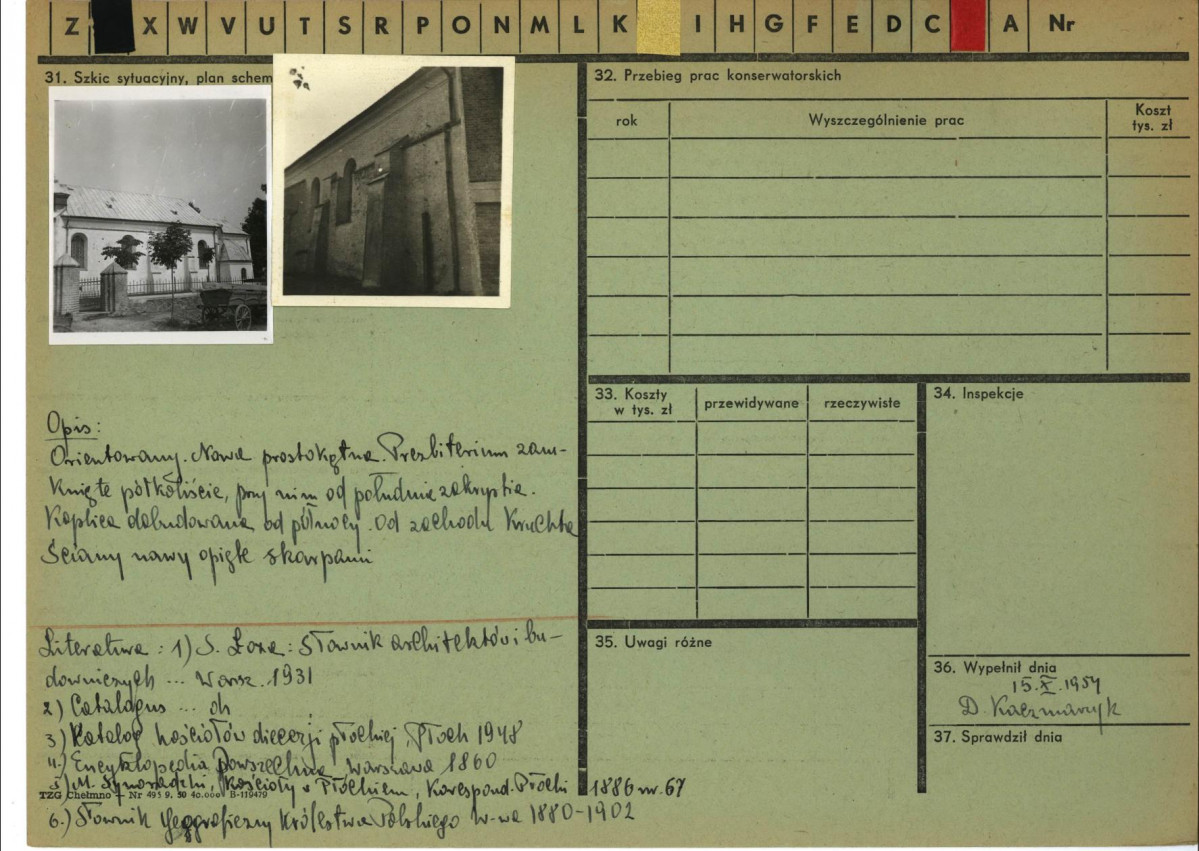 Z X W V U T S R P O N M L K I H G F E D C A Nr
31. Szkic sytuacyjny, plan schem
32. Przebieg prac konserwatorskich
rok
Wyszczególnienie prac
Koszt
tys. zł
33. Koszty
w tys. zł
przewidywane
rzeczywiste
34. Inspekcje
Opis:
Orientowany. Nawa prostokątna. Prezbiterium zam-
knięte półkoliście, przy nim od południa zakrystia.
Kaplica dobudowana od północy. Od zachodu kruchta
Ściany nawy opięte skarpami
Literatura: 1) S. Łoza: Słownik architektów i bu-
downiczych ... Warsz. 1931
2) Catalogus ...
3) Katalog kościołów diecezji płockiej, Płock 1948
4.) Encyklopedia Powszechna, Warszawa 1860
5) M. Synoradzki, Kościoły w Płockiem, Korespond. Płocki 1886 nr. 67
TZG Chełmno — Nr 495 9. 50 40.000 B-119479
6.) Słownik geograficzny Królestwa Polskiego W-wa 1880-1902
35. Uwagi różne
36. Wypełnił dnia
15.X.1959
D. Kaczmarzyk
37. Sprawdził dnia